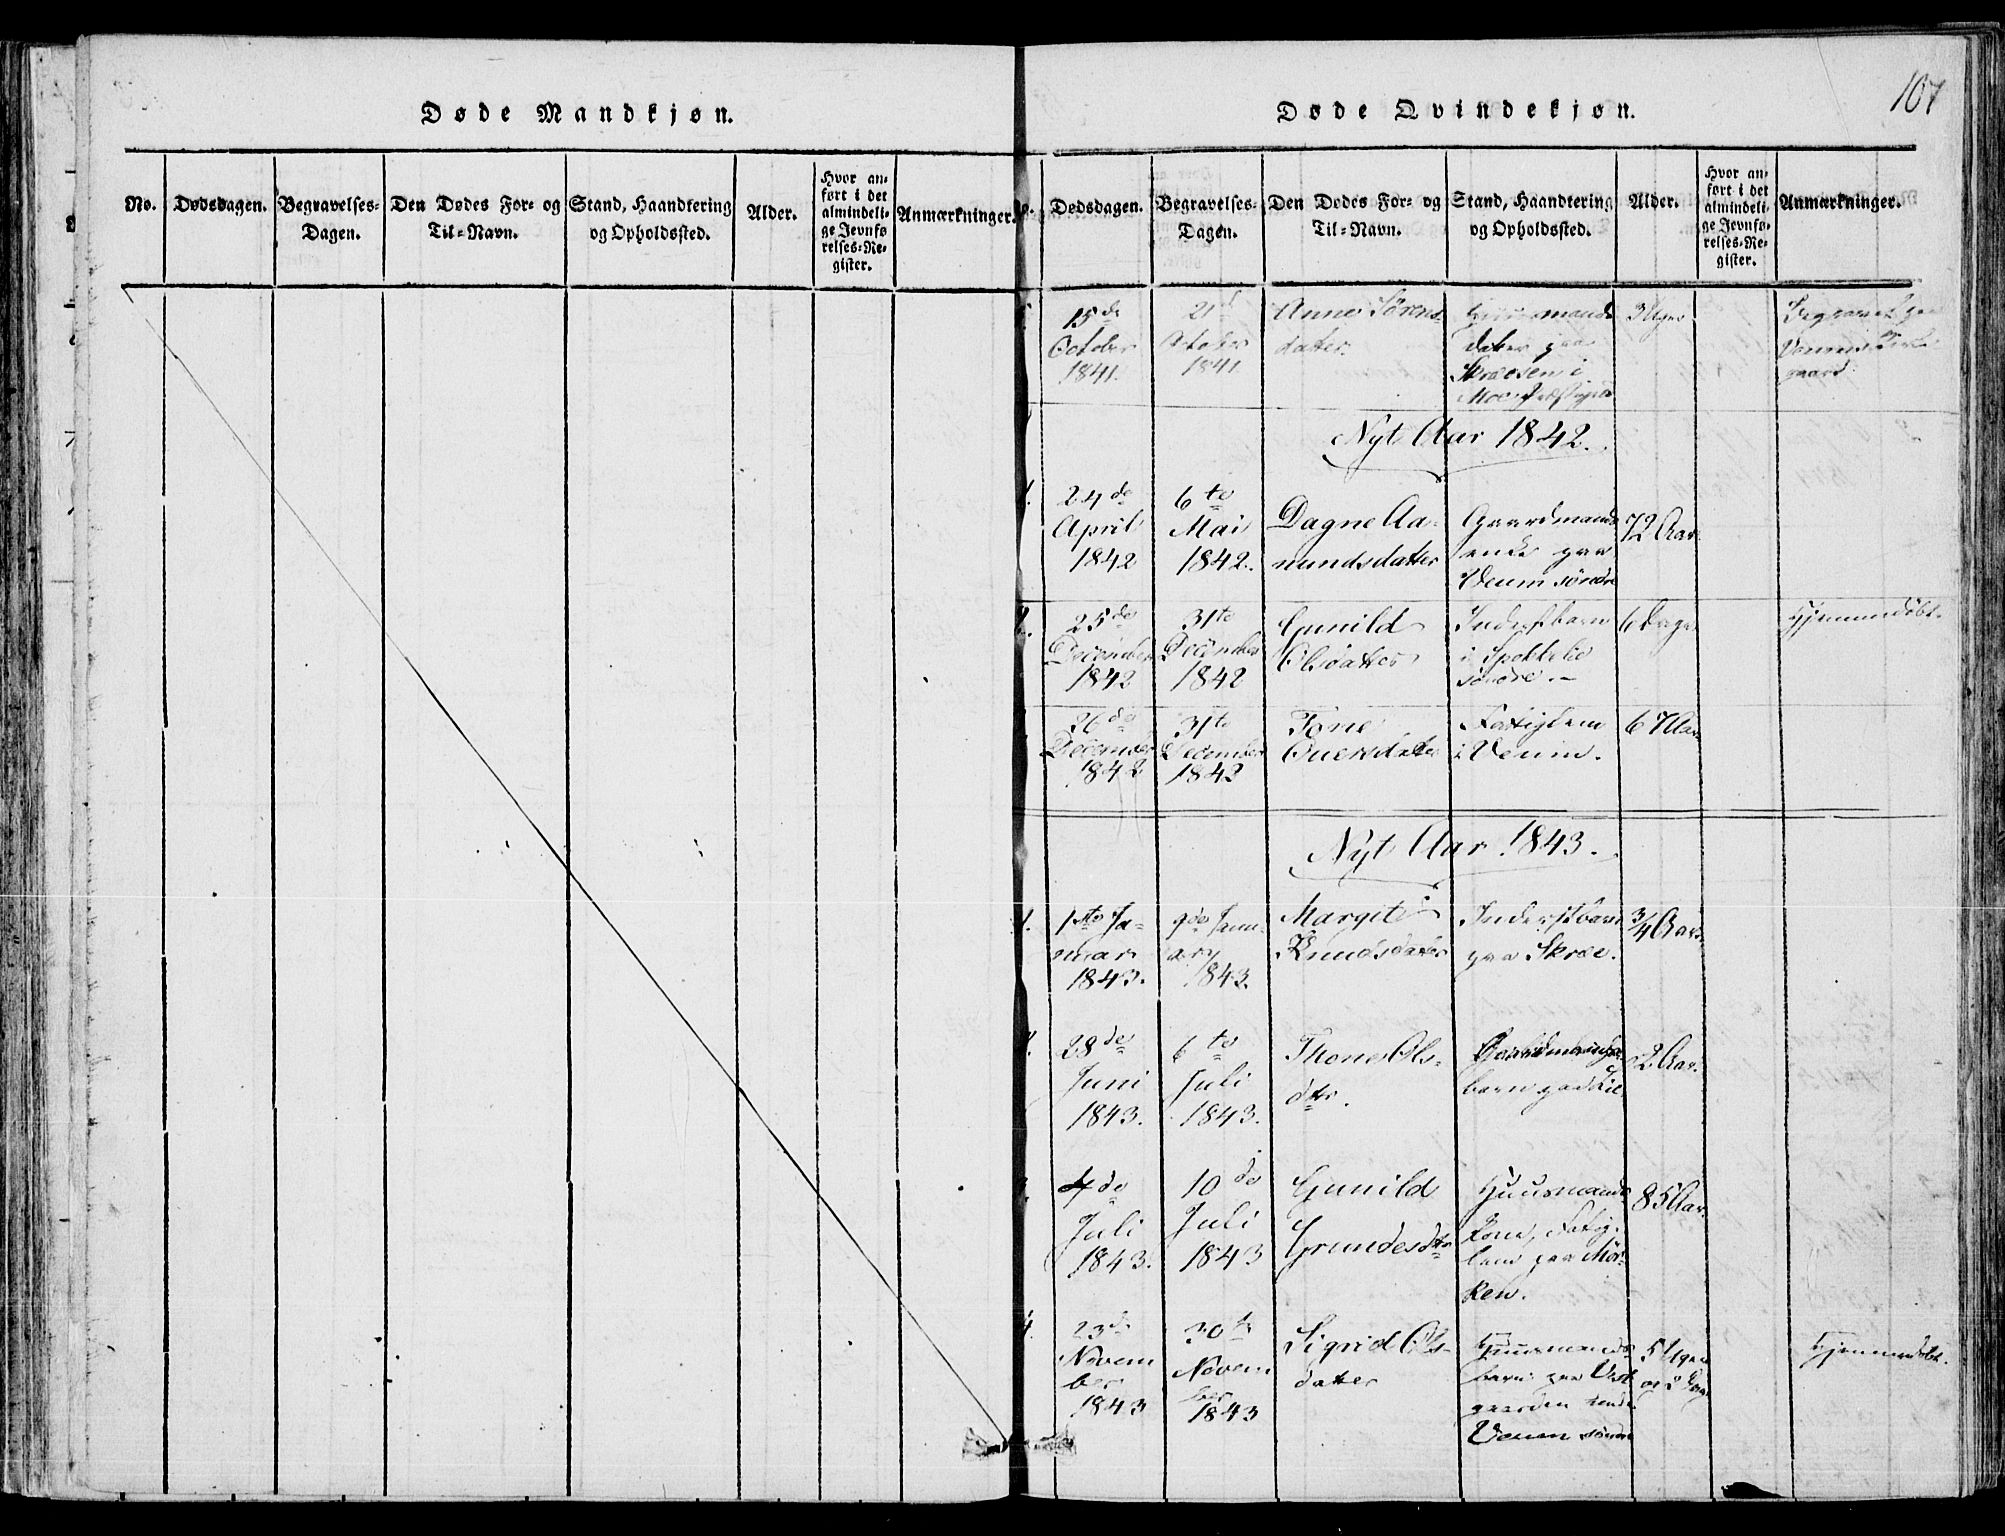 107
Døde Mandkjøn.
No.
Dødsdagen.
Begravelses-
Dagen.
Den Dødes For- og
Til-Navn.
Stand, Haandtering
og Opholdssted.
Alder.
Hvor an-
ført i det
almindeli-
ge Jevnfø
relses-Re-
gister.
Anmærkninger.
Døde Qvindekjøn.
Dødsdagen.
Begravelses-
Dagen.
Den Dødes For- og
Til-Navn.
Stand, Haandtering
og Opholdssted.
Alder.
Hvor an-
ført i det
almindeli-
ge Jevnfø-
relses-Re-
gister.
Anmærkninger.
15de
October
1841.
21d
October
1841
Anne Sørens
datter.
datter paa
Skræosen i
Moe
3 Uger
Begravet paa
gaard
Nyt Aar 1842.
1.
24de
April
1842
6te
Mai
1842.
Dagne Aa-
mundsdatter
Gaardmands
enke paa
Veum søndre
72 Aar.
2.
25de
December
1842
31te
December
1842
Gunild
Olsdatter
Inderstbarn
i
søndre.
6 Dage
Hjemmedøbt.
26de
December
1842
31te
December
1842
Tone
datter
Fattiglem
i Veum.
67 Aar
Nyt Aar 1843.
1.
1ste Ja-
nuar
1843.
9de Janu-
ary
1843.
Margit
Knudsdatter
Inderstbarn
paa Skræe.
3/4 Aar.
2.
28de
Juni
1843.
6te
Juli
1843.
Thone Ols-
dtr.
barn paa Lie
2 Aar.
4de
Juli
1843.
10de
Juli
1843
Gunild
Grundesdtr
Huusmands
kone, Fattig-
lem paa Mør-
ken.
85 Aar.
4.
23de
Novem
ber
1843
30te
Novem
ber
1843
Sigrid Ols-
datter
Huusmands-
barn paa Vest
gaarden under
Veum søndre
5 Uger
og 2 Dage
Hjemmedøbt.